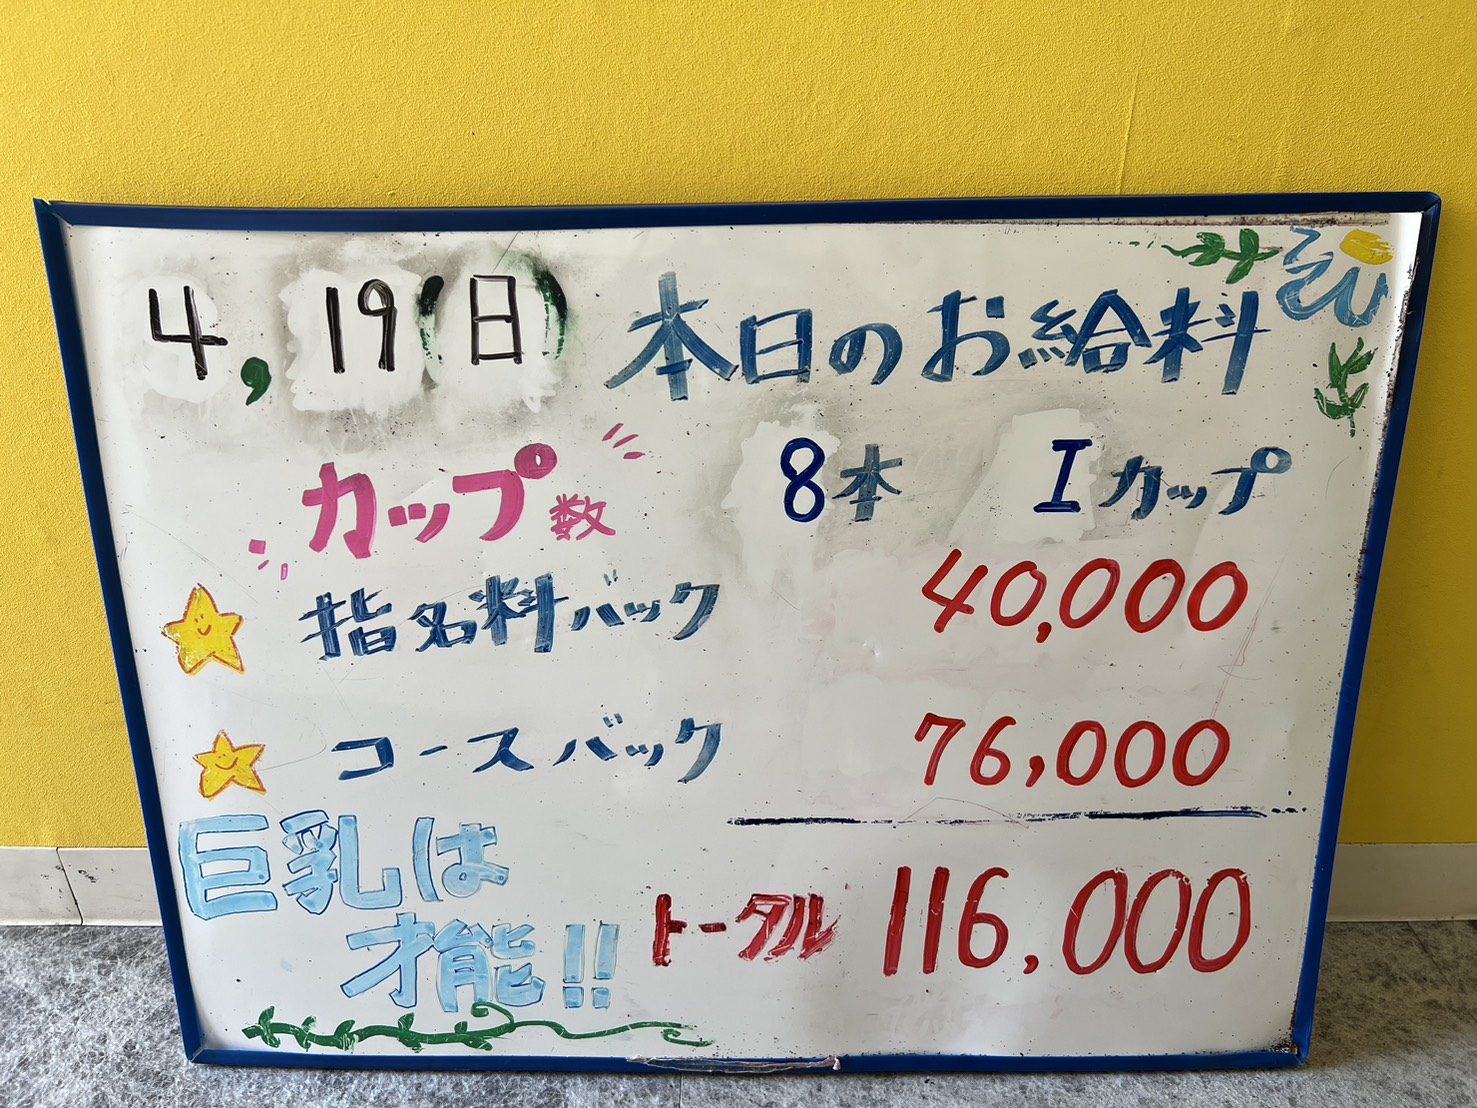 4,19(日) 本日のお給料
カップ数 8本 Iカップ
指名料バック 40,000
コースバック 76,000
巨乳は
才能!! トータル 116,000